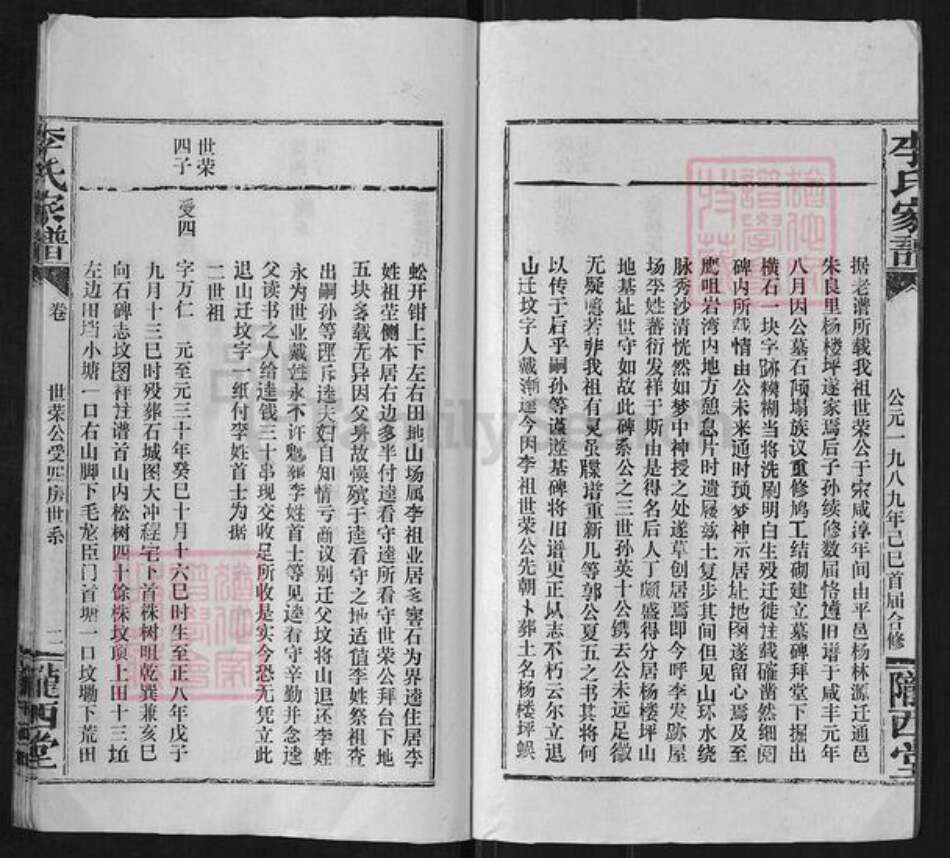 李氏家谱
公元一九八九年己巳首届合修
陇西堂
据老谱所载我祖世荣公于宋咸淳年间由平邑杨林源迁通邑
朱良里杨楼坪遂家焉后子孙续修数届恪遵旧谱于咸丰元年
八月因公墓石倾塌族议重修鸠工结砌建立墓碑拜堂下掘出
横石一块字跡糢糊当将洗刷明白生殁迁徙注载確凿然细阅
碑内所载情由公未来通时预梦神示居址地图遂留心焉及至
鹰咀岩湾内地方憩息片时遗屦荔土复步其间但见山环水绕
脉秀沙清恍然如梦中神授之处遂草创居焉即今呼李发跡屋
场李姓蕃衍发祥于斯由是得名后人丁颇盛得分居杨楼坪山
地基址世守如故此碑系公之三世孙英十公镌去公未远足徵
无疑噫若非我祖有夏虽牒谱重新几等郭公夏五之书其将何
以传于后乎嗣孙等谨遵基碑将旧谱更正从志不朽云尔立退
山迁坟字人戴渐逵今因李祖世荣公先朝卜葬土名杨楼坪蜈
蚣开钳上下左右田地山场属李祖业居夆窖石为界逵住居李
姓祖茔侧本居右边多半付逵看守逵所看守世荣公拜台下地
五块多载无异因父身故悮殡于逵看守之地适值李姓祭祖查
出嗣孙等理斥逵夫妇自知情亏商议别迁父坟将山退还李姓
永为世业戴姓永不许魆葬李姓首士等见逵看守辛勤并念逵
父读书之人给逵钱三十串现交收足所收是实今恐无凭立此
退山迁坟字一纸付李姓首士为据
二世祖
世荣四子
受四
字万仁 元至元三十年癸巳十月十六巳时生至正八年戊子
九月十三巳时殁葬石城图大冲程宅下首株树咀乾巽兼亥巳
向石碑志坟图祥注谱首山内松树四十馀株坟顶上田十三坵
左边田垱小塘一口右山脚下毛龙臣门首塘一口坟墈下荒田
李氏家谱
卷
世荣公受四房世系
二
陇西堂
FamilySearch